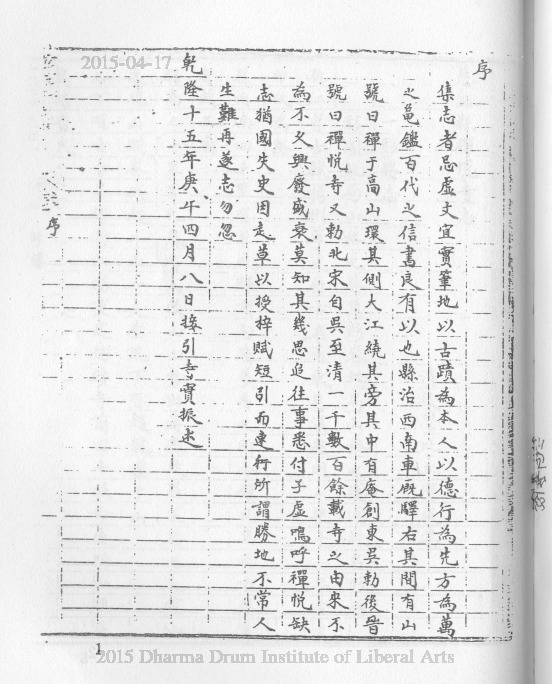 2015-04-17
序
集志者忌虛文宜實筆地以古蹟為本人以德行為先方為萬
之龜鑑百代之信書良有以也縣治西南車廐驛右其間有山
號曰禪于高山環其側大江繞其旁其中有庵創東吳勅後晉
號曰禪悅寺又勅北宋自吳至清一千數百餘載寺之由來不
為不久興廢盛衰莫知其幾思追往事悉付子虛嗚呼禪悅缺
志猶國失史因走草以授梓賦短引而連行所謂勝地不常人
生難再遂志勿忽
乾隆十五年庚午四月八日接引寺實振述
序
1
2015 Dharma Drum Institute of Liberal Arts